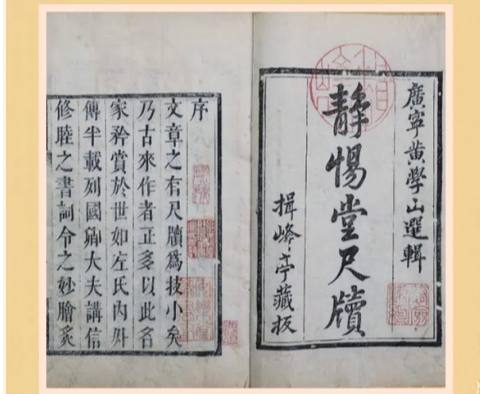 廣寧黃學山選輯
靜惕堂尺牘
揖峰亭藏板
序
文章之有尺牘爲技小矣
乃古來作者正多以此名
家矜賞於世如左氏內外
傳半載列國卿大夫講信
修睦之書詞令之妙膾炙